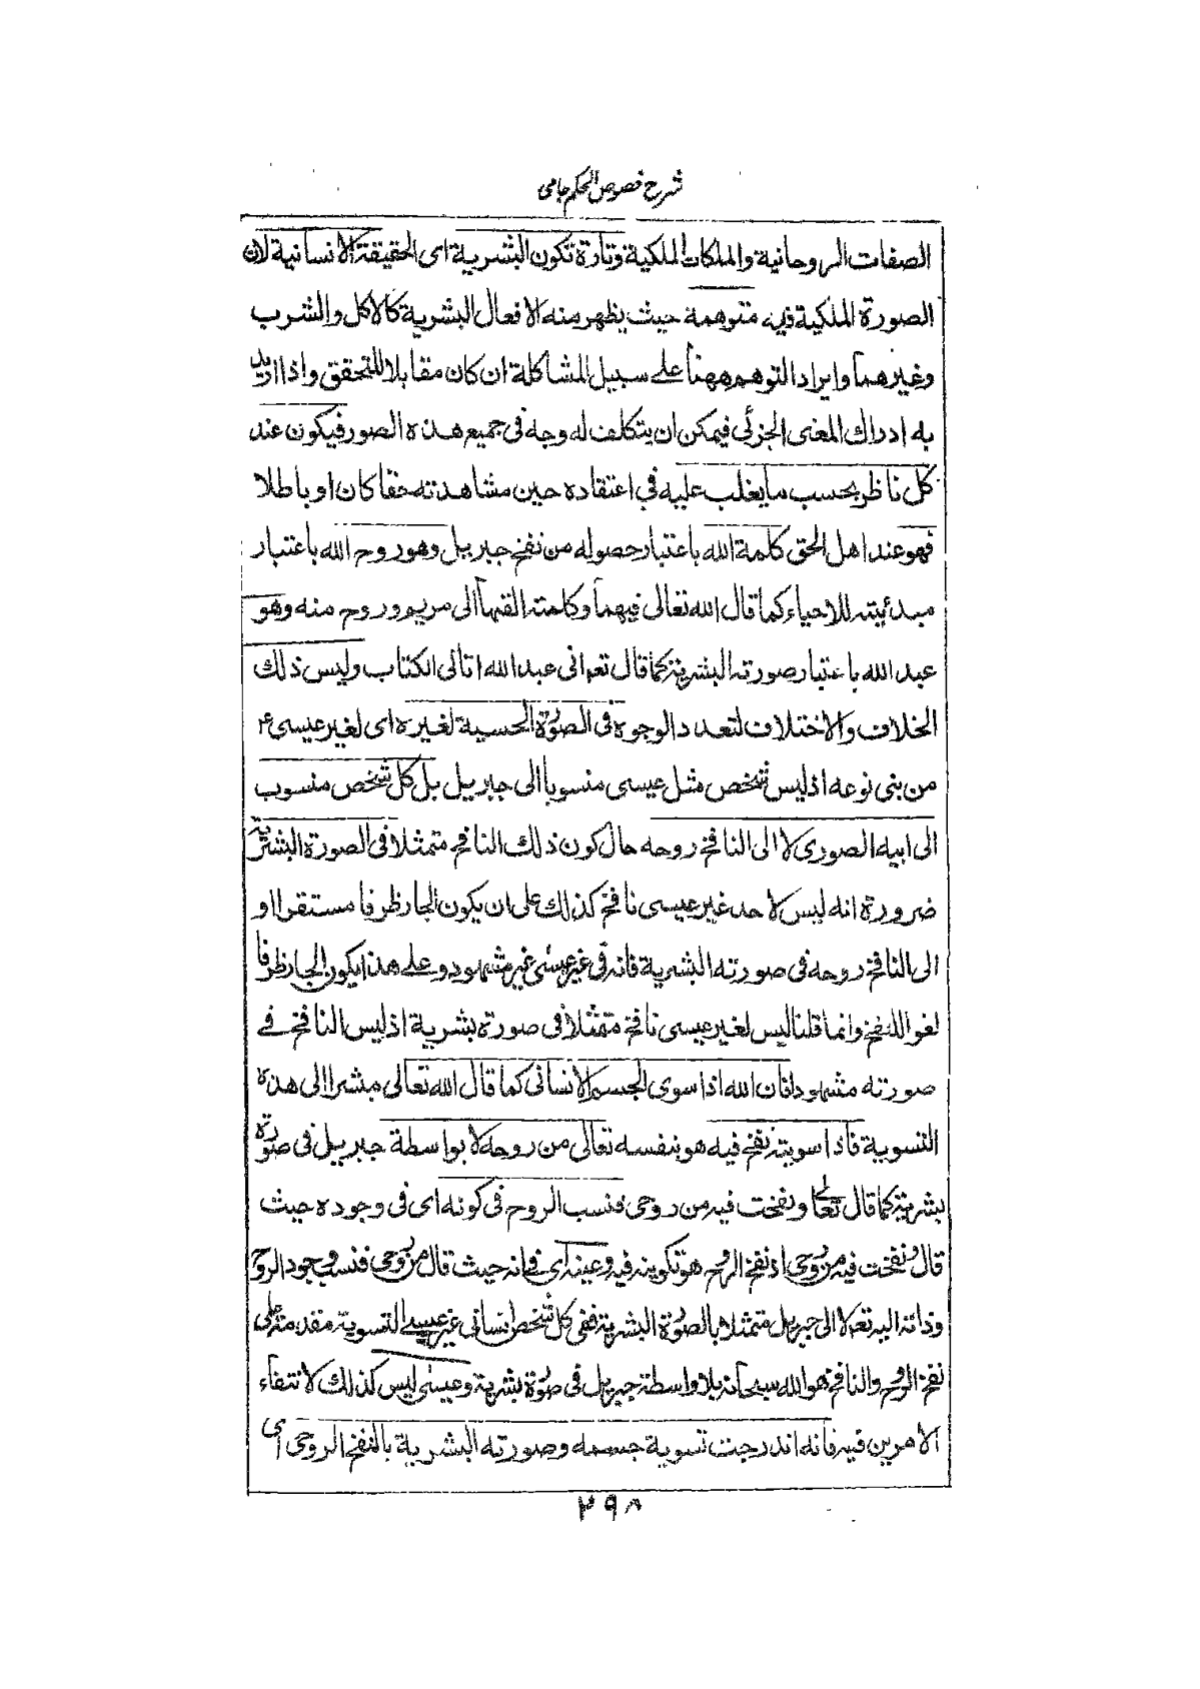 شرح فصوص الحكم جامی
الصفات الروحانية والملكات الملكية وتارة تكون البشرية اى الحقيقة الانسانية لان
الصورة الملكية فيه متوهمة حيث يظهر منه الافعال البشرية كالاكل والشرب
وغيرهما وايراد التوهم ههنا على سبيل المشاكلة ان كان مقابلا للتحقق واذا اريد
به ادراك المعنى الجزئى فيمكن ان يتكلف له وجه فى جميع هذه الصور فيكون عند
كل ناظر بحسب ما يغلب عليه فى اعتقاده حين مشاهدته حقا كان او باطلا
فهو عند اهل الحق كلمة الله باعتبار حصوله من نفخ جبريل وهو روح الله باعتبار
مبدئيته للاحياء كما قال الله تعالى فيهما وكلمته القٰها الى مريم وروح منه وهو
عبد الله باعتبار صورته البشرية كما قال تعـ انى عبد الله اتانى الكتاب وليس ذلك
الخلاف والاختلاف لتعدد الوجوه فى الصورة الحسية لغيره اى لغير عيسى ع
من بنى نوعه اذ ليس شخص مثل عيسى منسوبا الى جبريل بل كل شخص منسوب
الى ابيه الصورى لا الى النافخ روحه حال كون ذلك النافخ متمثلا فى الصورة البشرية
ضرورة انه ليس لاحد غير عيسى نافخ كذلك على ان يكون الجار ظرفا مستقرا او
الى النافخ روحه فى صورته البشرية فانه فى غير عيسى غير مشهود وعلى هذا يكون الجار ظرفا
لغوا للنفخ وانما قلنا ليس لغير عيسى نافخ متمثلا فى صورة بشرية اذ ليس النافخ فى
صورته مشهودا فان الله اذا سوى الجسم الانسانى كما قال الله تعالى مشيرا الى هذه
التسوية فاذا سويته نفخ فيه هو بنفسه تعالى من روحه لا بواسطة جبريل فى صورة
بشرية كما قال تعالى ونفخت فيه من روحى فنسب الروح فى كونه اى فى وجوده حيث
قال ونفخت فيه من روحى اذ نفخ الروح هو تكوينه فيه وعينه اى فانه حيث قال من روحى فنسب وجود الروح
وذاته اليه تعـ لا الى جبريل متمثلا بالصورة البشرية ففى كل شخص انسانى غير عيسى التسوية مقدمة على
نفخ الروح والنافخ هو الله سبحانه بلا واسطة جبريل فى صورة بشرية وعيسى ليس كذلك لانتفاء
الامرين فيه فانه اندرجت تسوية جسمه وصورته البشرية بالنفخ الروحى اى
٢٩٨